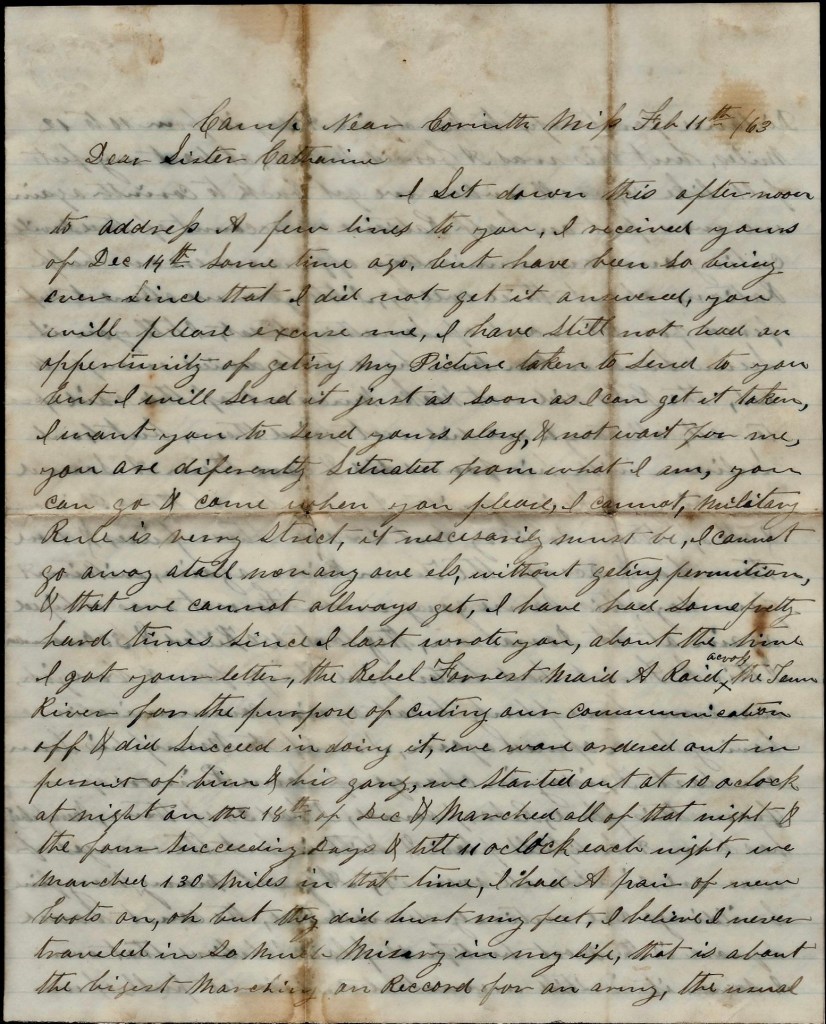 Camp Near Corinth Miss Feb 11th /63
Dear Sister Catharine
I Sit down this after noon
to address A few lines to you, I received yours
of Dec 14th Some time ago, but have been So buisy
ever Since that I did not get it answered, you
will please excuse me, I have Still not had an
oppertunity of geting My Picture taken to Send to you
but I will Send it just as Soon as I can get it taken,
I want you to Send yours along, & not wait for me,
you are diferently Situated from what I am, you
can go & come when you please, I cannot, Military
Rule is verry Strict, it nescesarily must be, I cannot
go away atall nor any one els, without geting permition,
& that we cannot allways get, I have had Some pretty
hard times Since I last wrote you, about the time
I got your letter, the Rebel Forrest Maid A Raid across the Tenn
River for the purpose of cuting our communication
off & did Succeed in doing it, we ware ordered out in
persuit of him & his gang, we Started out at 10 oclock
at night on the 18th of Dec & Marched all of that night &
the four Succeeding Days & till 11 oclock each night, we
Marched 130 Miles in that time, I had A pair of new
boots on, oh but they did hurt my feet, I believe I never
traveled in So Much Misery in my life, that is about
the bigest Marching on Reccord for an army, the usual